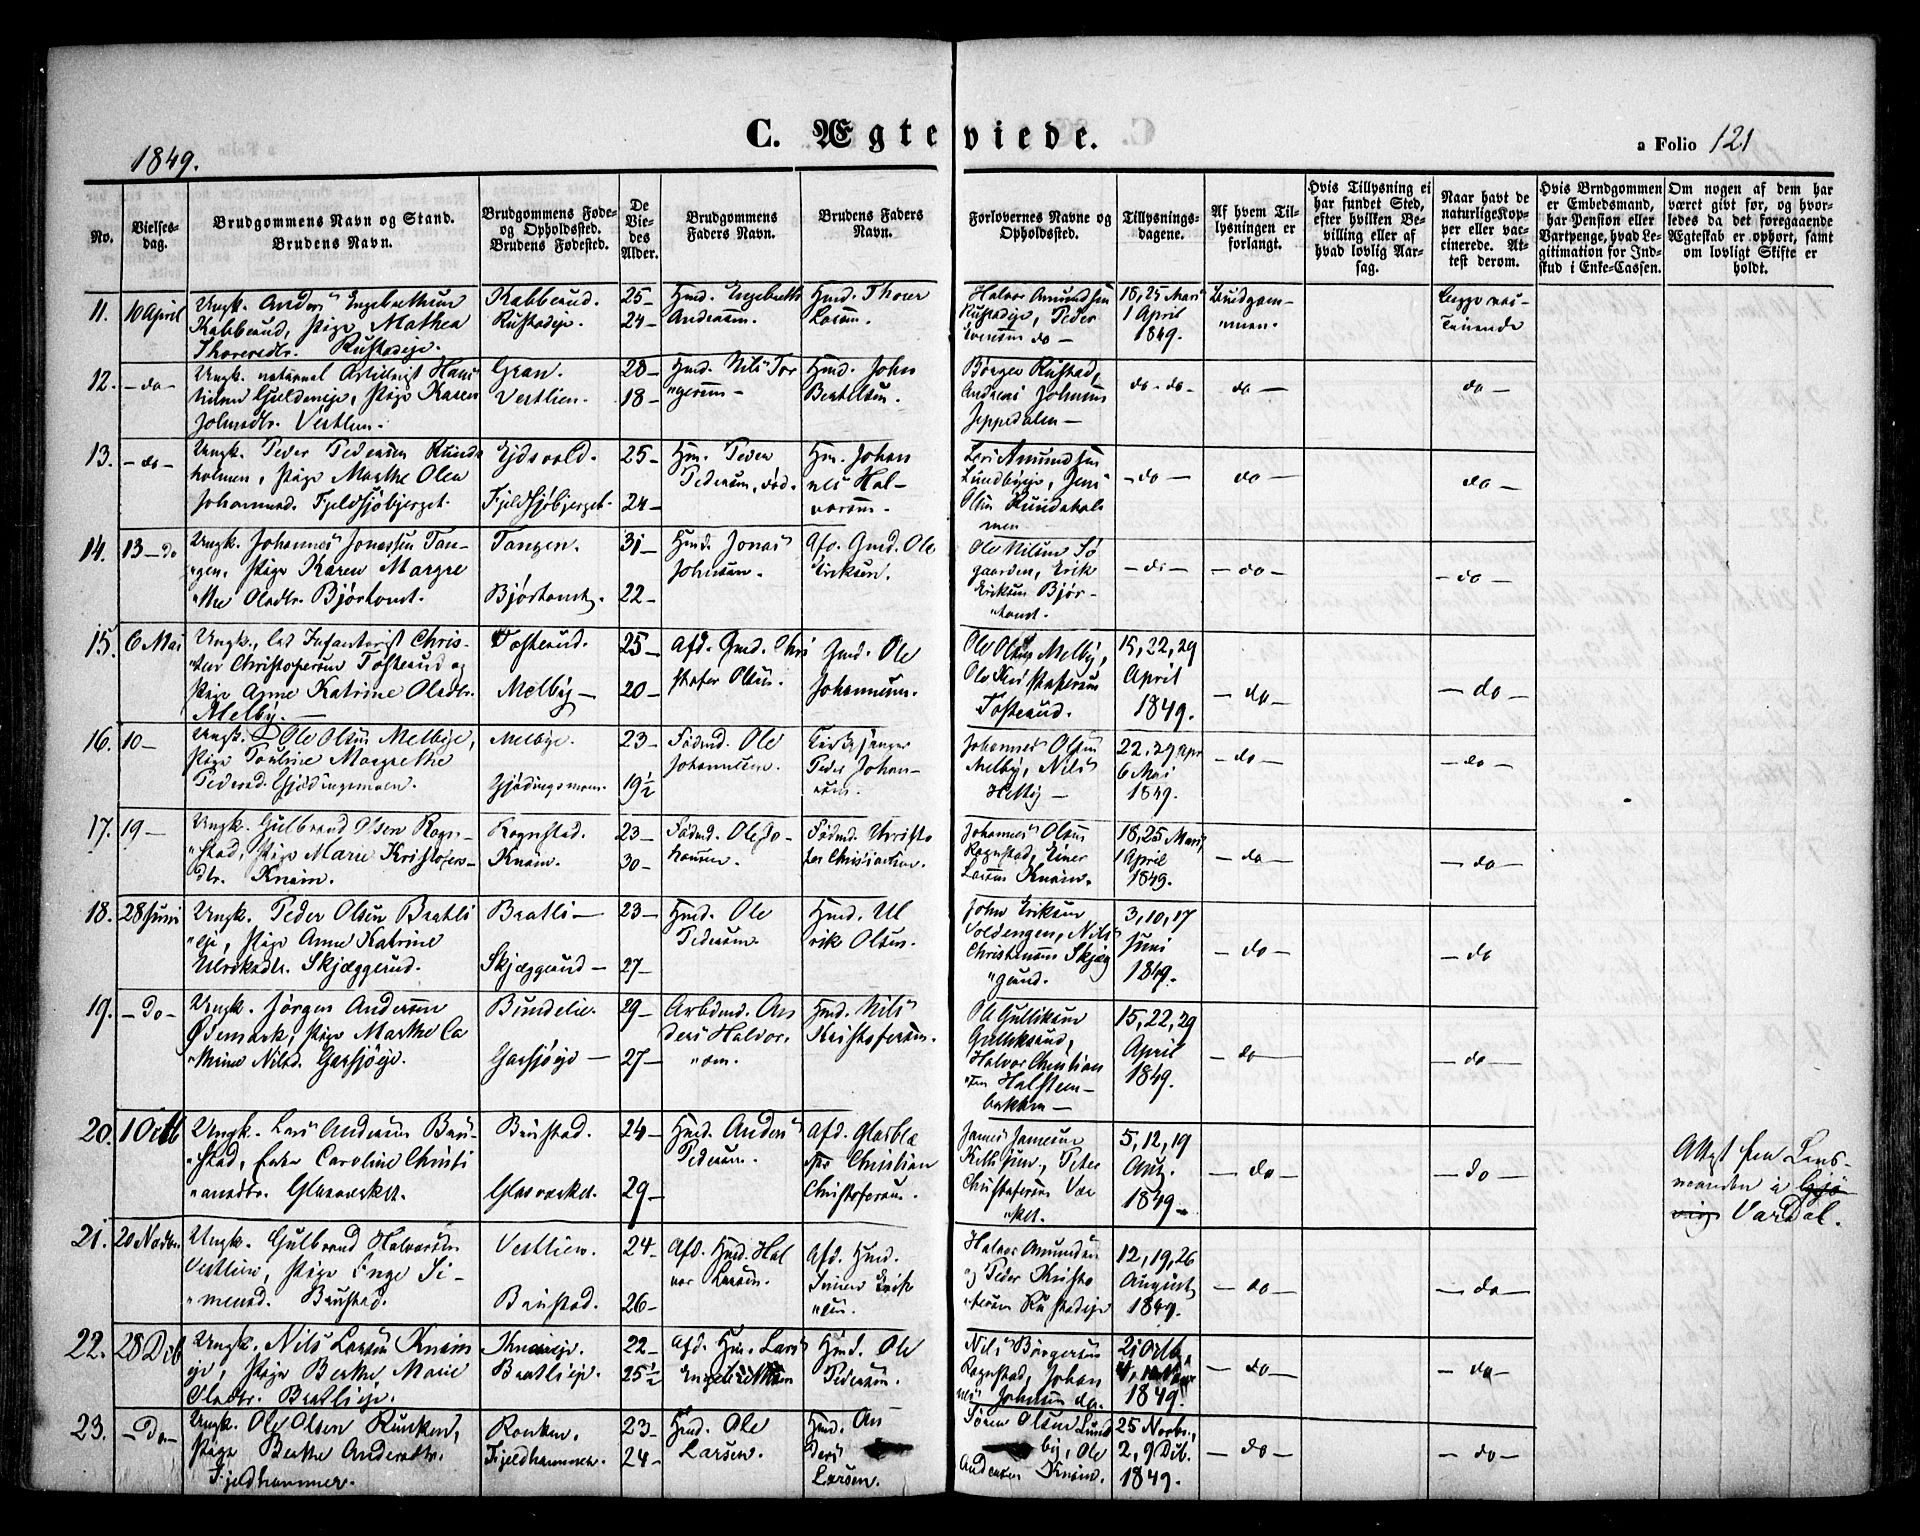 C. Ægteviede.
1849.
a Folio 121
No.
Vielses-
dag.
Brudgommens Navn og Stand.
Brudens Navn.
Brudgommens Føde-
og Opholdssted.
Brudens Fødested.
De
Vie-
des
Alder.
Brudgommens
Faders Navn.
Brudens Faders
Navn.
Forlovernes Navne og
Opholdssted.
Tillysnings-
dagene.
Af hvem Til-
lysningen er
forlangt.
Hvis Tillysning ei
har fundet Sted,
efter hvilken Be-
villing eller af
hvad lovlig Aar-
sag.
Naar havt de
naturlige Kop-
per eller vac-
cinerede. At-
test derom.
Hvis Brudgommen
er Embedsmand,
har Pension eller
Vartpenge, hvad Le-
gitimation for Ind-
skud i Enke-Cassen.
Om nogen af dem har
været givt før, og hvor-
ledes da det foregaaende
Ægteskab er ophørt, samt
om lovligt Skifte er
holdt.
11. 10 April
Ungk. Anders Engebrethsen
Kabberud, Pige Mathea
Thoresdtr. Rustadeje.
Kabberud.
Rustadeje.
25-
24-
Hmd. Engebreth
Andersen.
Hmd. Thorer
Larsen.
Halvor Amundsen
Rustadeje, Peder
Evensen do -
18, 25 Mars
1 April
1849.
Brudgom-
men.
Begge vac-
cinerede
12. - do -
Ungk. Hans
Pige Karen
Johnsdtr. Vestlien.
Gran.
Vestlien.
28-
18-
Hmd. Nils Tor
"gersen-
Hmd. John
Bertelsen.
Børger Rustad,
Andreas Johnsen
Jeppedalen-
do - do -
do -
do -
13. - do -
Ungk. Peder Pedersen Runds
holmen, Pige Marthe Olea
Johannesd. Fjeldsjøbjerget.
Ejdsvold.
Fjeldsjøbjerget.
25-
24-
Hm. Peder
Pedersen, død.
Hm. Johan
nes Hal-
vorsen-
Lars Amundsen
Lundbyeje, Jens
Olsen Rundshol
men
- do -
do -
do -
14. 13 - do
Ungk. Johannes Jonassen Tan-
"gen, Pige Karen Margre
"the Olsdtr. Bjørtomt.
Tangen.
Bjørtomt.
31-
22-
Hmd. Jonas
Johnsen.
Afd. Gmd. Ole
Eriksen.
Ole Nilsen Sø
gaarden, Erik
Eriksen Bjør-
"tomt.
- do -
- do -
- do -
15. 6 Mai
Ungk., Infanterist Chris-
Christofersen Tosterud og
Pige Anne Katrine Olsdtr.
Melby.
Tosterud.
Melby-
25-
20-
Afd. Gmd. Chri
stofer Olsen.
Gmd. Ole
Johannesen.
Ole Olsen Melby,
Ole Kristofersen
Tosterud.
15, 22, 29
April
1849.
- do -
- do -
16. 10 -
Ungk. Ole Olsen Melbye,
Pige Pauline Margrethe
Pedersd. Gjødingsmoen.
Melbye.
Gjødingsmoen.
23-
19½
Fødmd. Ole
Johannesen.
Kirkesanger
Peder Johan-
sen.
Johannes Olsen
Melby, Nils
Melby-
22, 29 Apr
6 Mai
1849.
- do -
- do -
17. 19 -
Ungk. Gulbrand Olsen Rogn-
"stad, Pige Maria Kristofers-
dtr. Knain.
Rognstad.
Knain.
23-
30-
Fødmd. Ole Jo-
hansen.
Fødmd. Christo
fer Christiansen.
Johannes Olsen
Rognstad, Einer
Larsen Knain.
18, 25 Mars,
1 April
1849.
- do -
- do -
18. 28 Juni
Ungk. Peder Olsen Bratli
"eje, Pige Anne Katrine
Ulriksdtr. Skjæggerud.
Bratli-
Skjæggerud-
23-
27-
Hmd. Ole
Pedersen.
Hmd. Ul
rik Olsen.
John Eriksen
Soldengen, Nils
Christensen Skjæg
"gerud.
3, 10, 17
Juni
1849.
- do -
- do
19. - Do -
Ungk. Jørgen Andersen
Ødemark, Pige Marthe Ca
"thrine Nilsd. Garsjøeje.
Bundelie.
Garsjøeje-
29-
27-
Arbdmd. An
ders Halvor-
"sen.
Hmd. Nils
Kristofersen.
Ole Gulliksen
Gulliksrud,
Halvor Christian
"sen Halsteen-
bakken-
15, 22, 29
April
1849.
- do -
- do -
20. 1 Octb
Ungk. Lars Andersen Bru-
"stad, Enke Caroline Christi
"ansdtr. Glasværket.
Brustad.
Glasværket.
24-
29-
Hmd. Anders
Pedersen.
Afd. Glasblæ
ser Christian
Christofersen.
James Jamesen
Peter
Christofersen Vær
"ket.
5, 12, 19
Aug.
1849-
- do
- do
Attest fra Lens-
manden i Gjø
vig Vardal.
21. 20 Novbr.
Ungk. Gulbrand Halvorsen
Vestlien, Pige Inge Si-
"mensd. Brustad.
Vestlien.
Brustad.
24-
26-
Afd. Hmd. Hal
vor Larsen.
Afd. Hmd.
Simen
"sen.
Halvor Amundsen
og Peder Kristo
"fersen Rustadeje
12, 19, 26
August
1849.
- do
- do -
22. 28 Dcb
Ungk. Nils Larsen Knain
eje, Pige Berthe Marie
Olsdtr. Bratlieje.
Knaineje.
Bratlieje.
22-
25½
Afd. Hm. Lars
Engebrethsen
Hmd. Ole
Pedersen.
Nils Børgersen
Rognstad, Johan
nes Johnsen do.
21 Octb,
1849.
- do -
- do -
23. - Do -
Ungk. Ole Olsen Runken,
Pige Berthe Andersdtr.
Fjeldhammer.
Ronken.
Fjeldhammer.
23-
24-
Hmd. Ole
Larsen.
Hmd. An
ders
Larsen.
Søren Olsen Lund
by, Ole
Andersen Knain.
25 Novbr.,
2, 9 Dcb.
1849.
- do -
- do -